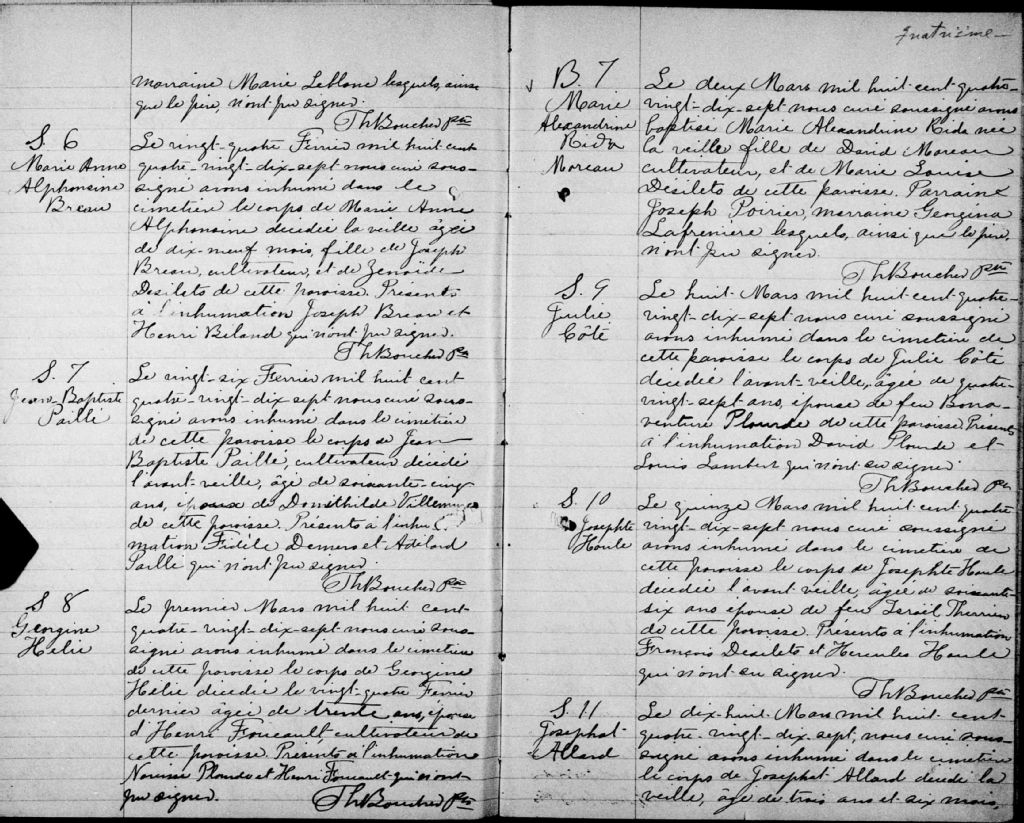 marraine Marie Leblanc lesquels, ainsi
que le père, n'ont pu signer.
Th Boucher Ptre
S. 6
Marie Anne
Alphonsine
Breau
Le vingt-quatre Fevrier mil huit cent
quatre-vingt-dix sept nous curé sous-
signé avons inhumé dans le
cimetière le corps de Marie Anne
Alphonsine décédée la veille agée
de dix-neuf mois, fille de Joseph
Breau, cultivateur, et de Zenoïde
Desilets de cette paroisse. Présents
à l'inhumation Joseph Breau et
Henri Beland qui n'ont pu signer.
Th Boucher Ptre
S. 7
Jean-Baptiste
Paillé
Le vingt-six Fevrier mil huit cent
quatre-vingt-dix sept nous curé sous-
signé avons inhumé dans le cimetière
de cette paroisse le corps de Jean
Baptiste Paillé, cultivateur décédé
l'avant-veille, âgé de soixante-cinq
ans, époux de Domithilde
de cette paroisse. Présents à l'inhu
mation Fidèle Demers et Adélard
Paillé qui n'ont pu signer.
Th Boucher Ptre
S 8
Georgine
Hélie
Le premier Mars mil huit cent
quatre-vingt-dix-sept nous curé sous-
signé avons inhumé dans le cimetière
de cette paroisse le corps de Georgine
Hélie décédée le vingt-quatre Fevrier
dernier âgée de trente ans, épouse
d'Henri Foucault cultivateur de
cette paroisse. Présents à l'inhumation
Plourde et Henri Foucault qui n'ont
pu signer.
Th Boucher Ptre
quatrième
B. 7
Marie
Alexandrine
Rida
Moreau
Le deux Mars mil huit-cent-quatre
vingt-dix-sept nous curé soussigné avons
baptisé Marie Alexandrine Rida née
la veille fille de David Moreau
cultivateur, et de Marie Louise
Desilets de cette paroisse. Parrain
Joseph Poirier, marraine Georgina
Lafrenière lesquels, ainsi que le père,
n'ont pu signer.
Th Boucher Ptre
S. 9
Julie
Côté
Le huit Mars mil huit-cent-quatre-
vingt-dix-sept nous curé soussigné
avons inhumé dans le cimetière de
cette paroisse le corps de Julie Côté
décédée l'avant-veille, âgée de quatre-
vingt-sept ans, épouse de feu Bona-
venture Plourde de cette paroisse. Présents
à l'inhumation David Plourde et
Louis Lambert qui n'ont su signer.
Th Boucher Ptre
S. 10
Josephte
Houle
Le quinze Mars mil huit cent quatre
vingt-dix-sept nous curé soussigné
avons inhumé dans le cimetière de
cette paroisse le corps de Josephte Houle
décédée l'avant veille, âgée de soixante-
six ans épouse de feu Israïl Therrien
de cette paroisse. Présents à l'inhumation
François Desilets et Hercules Houle
qui n'ont su signer.
Th Boucher Ptre
S. 11
Josephat
Allard
Le dix-huit Mars mil huit cent
quatre-vingt-dix-sept, nous curé sous-
signé avons inhumé dans le cimetière
le corps de Josephat Allard décédé la
veille, âgé de trois ans et six mois,